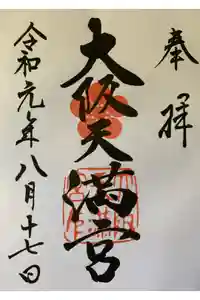 奉拝
大阪天満宮
令和元年八月十七日